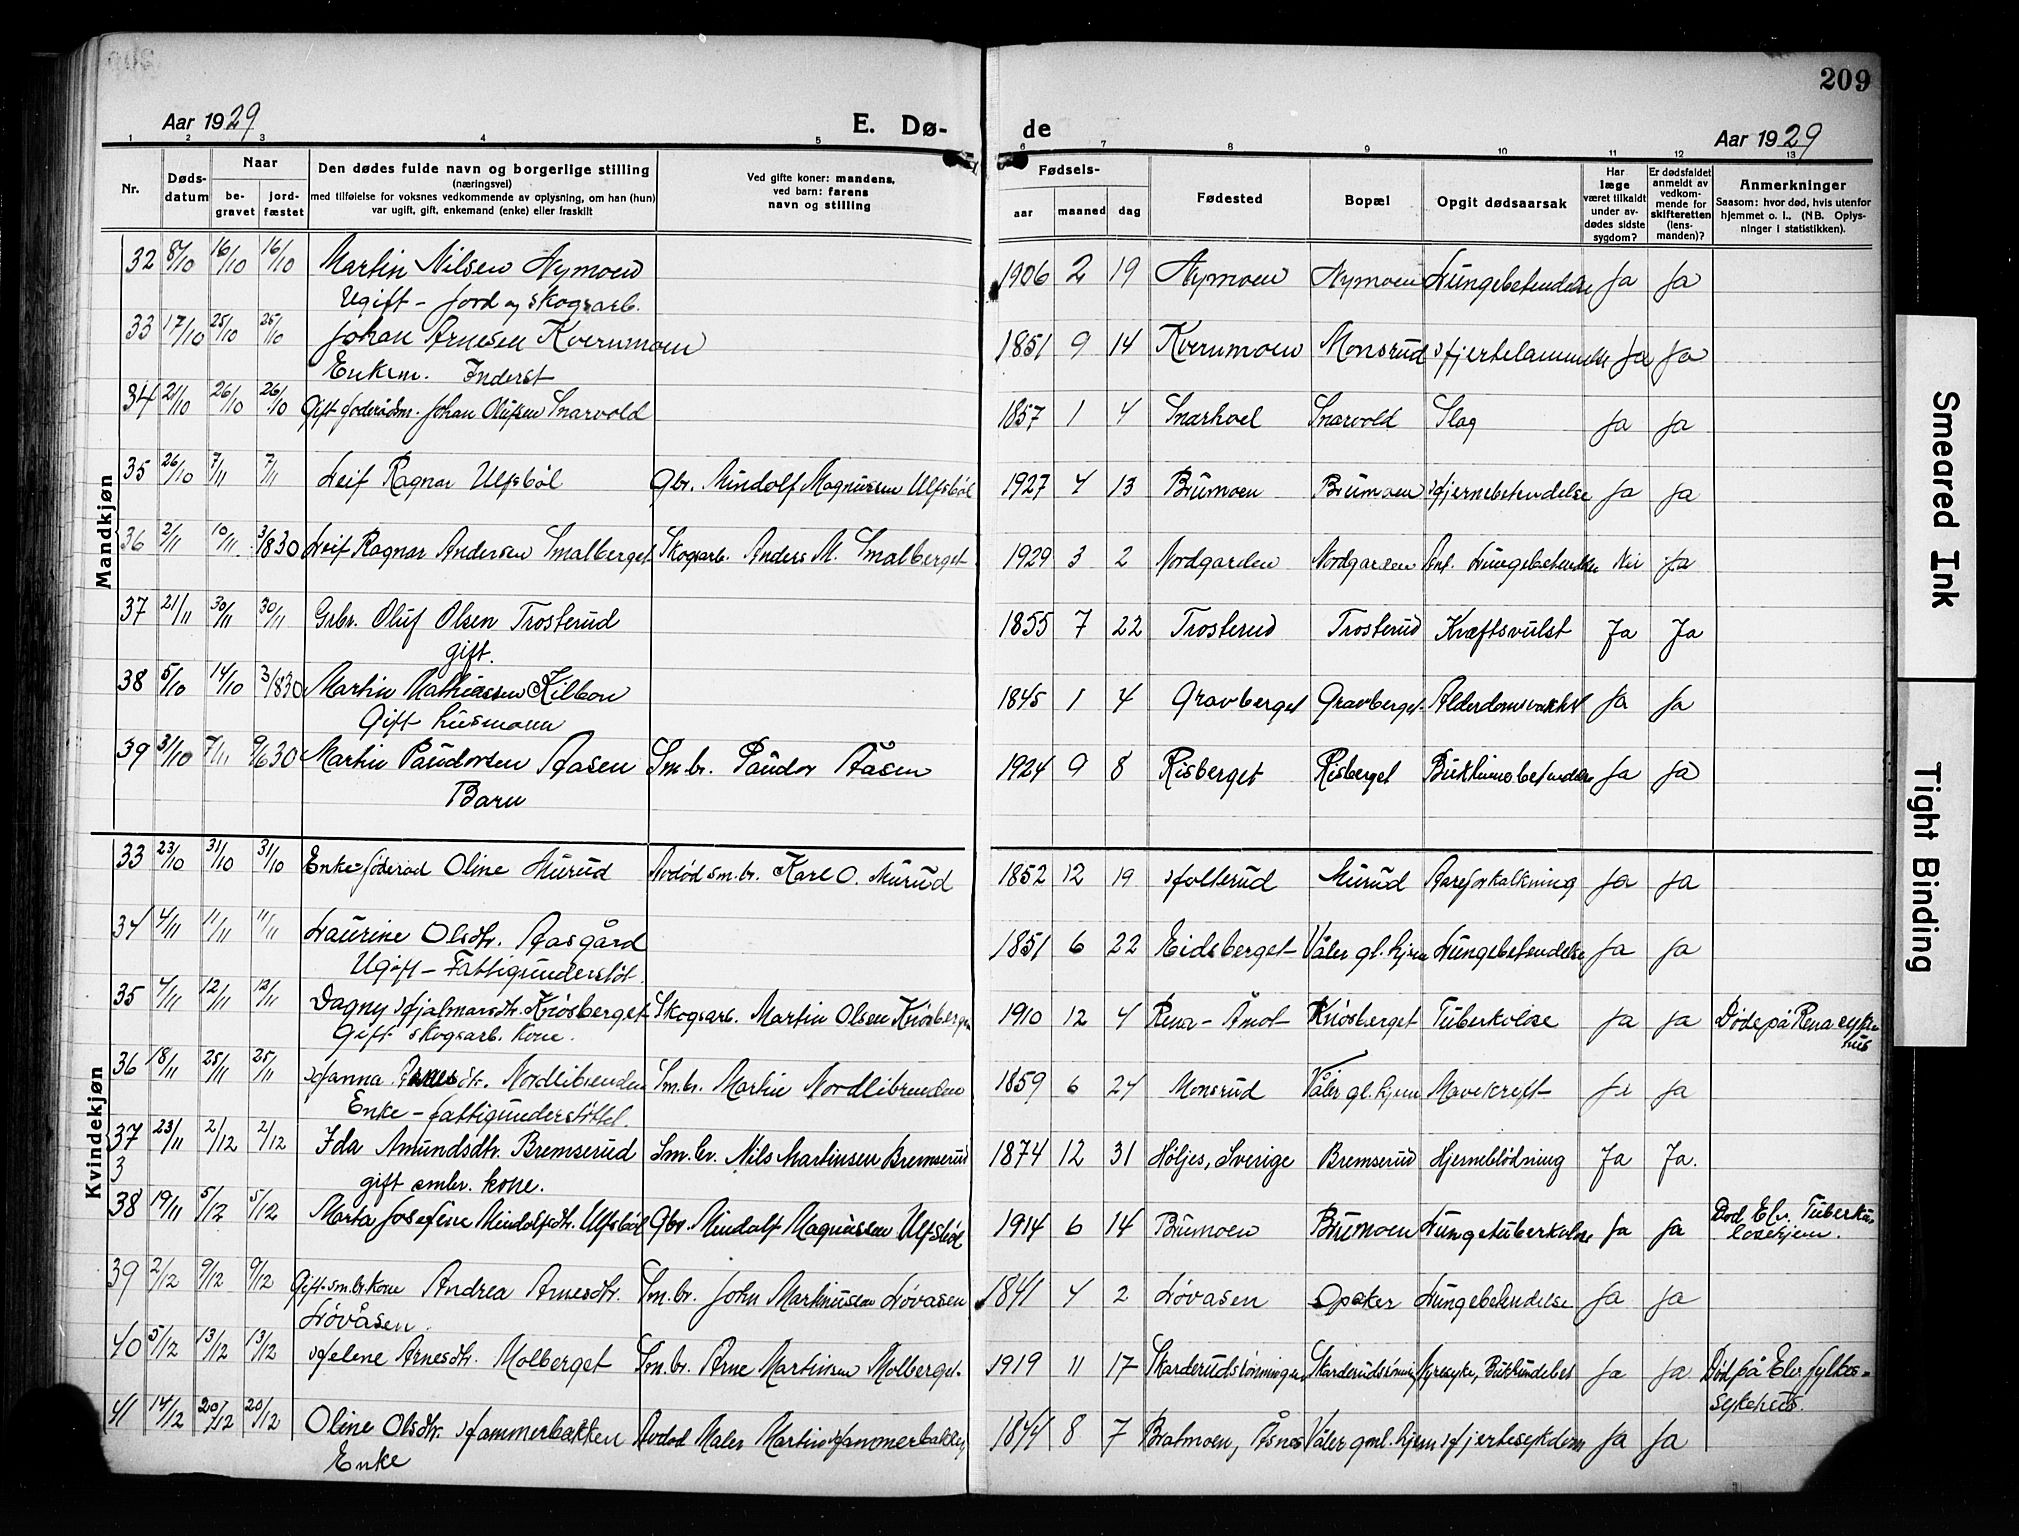 209
Aar 1929
E. Dø-
de
Aar 1929
1 2 3 4 5 6 7 8 9 10 11 12 13
Nr.
Døds-
datum
Naar
be-
gravet
jord-
fæstet
Den dødes fulde navn og borgerlige stilling
(næringsvei)
med tilføielse for voksnes vedkommende av oplysning, om han (hun)
var ugift, gift, enkemand (enke) eller fraskilt
Ved gifte koner: mandens,
ved barn: farens
navn og stilling
Fødsels-
aar maaned dag
Fødested
Bopæl
Opgit dødsaarsak
Har
læge
været tilkaldt
under av-
dødes sidste
sygdom?
Er dødsfaldet
anmeldt av
vedkom-
mende for
skifteretten
(lens-
manden)?
Anmerkninger
Saasom: hvor død, hvis utenfor
hjemmet o. l., (NB. Oplys-
ninger i statistikken).
Mandkjøn
32 8/10 16/10 16/10 Martin Nilsen Nymoen 1906 2 19 Nymoen Nymoen Lungebetendelse Ja Ja
Ugift – Jord og skogsarb.
33 17/10 25/10 25/10 Johan Arnesen Kvernmoen 1851 9 14 Kvernmoen Monsrud Hjertelammelse Ja Ja
Enkem. Inderst
34 21/10 26/10 26/10 Gift foderådsm. Johan Olufsen Snarvold 1857 1 4 Snarhoel Snarvold Slag Ja Ja
35 26/10 7/11 7/11 Leif Ragnar Ulfsbøl Gbr. Mindolf Magnussen Ulfsbøl 1927 4 13 Brumoen Brumoen Hjernebetendelse Ja Ja
36 2/11 10/11 3/8 30 Leif Ragnar Andersen Smalberget Skogsarb. Anders M. Smalberget 1929 3 2 Nordgarden Nordgarden Ant. Lungebetendelse Nei Ja
37 21/11 30/11 30/11 Grbr. Oluf Olsen Trosterud 1855 7 22 Trosterud Trosterud Kræftsvulst Ja Ja
gift.
38 5/10 14/10 3/8 30 Martin Mathiassen Kilbon 1845 1 4 Gravberget Gravberget Alderdomsvakhet Ja Ja
Gift husmann
39 31/10 7/11 9/6 30 Martin Paudorsen Aasen Sm.br. Paudor Åasen 1924 9 8 Risberget Risberget Bukhinnebetendelse Ja Ja
Barn
Kvindekjøn
33 23/10 31/10 31/10 Enke føderåd Oline Murud Avdød sm.br. Karl O. Murud 1852 12 19 Holterud Murud Aareforkalkning Ja Ja
34 4/11 11/11 11/11 Laurine Olsdtr. Aasgård 1851 6 22 Eidsberget Våler gl. hjem Lungebetendelse Ja Ja
Ugift – Fattigunderstøt.
35 4/11 12/11 12/11 Dagny Hjalmarsdtr. Knøsberget Skogsarb. Martin Olsen Knøsberget 1910 12 4 Rena – Åmot Knøsberget Tuberkolose Ja Ja Døde på Rena syke
hus
Gift skogsarb. kone.
36 18/11 25/11 25/11 Hanna Arnesdtr. Nordlibrenden Sm.br. Martin Nordlibrenden 1859 6 24 Monsrud Våler gl. hjem Mavekreft Ja Ja
Enke – fattigunderstøttet.
37 23/11 2/12 2/12 Ida Amundsdtr. Bremserud Sm.br. Nils Martinsen Bremserud 1874 12 31 Höljes, Sverige Bremserud Hjerneblödning Ja Ja.
3 gift smbr. kone.
38 19/11 5/12 5/12 Marta Josefine Mindolfsdtr. Ulfsbøl Gbr. Mindolf Magnussen Ulfsbøl 1914 6 14 Brumoen Brumoen Lungetuberkulose Ja Ja Død Elv. Tuberku-
losehjem.
39 2/12 9/12 9/12 Gift sm.br.kone Andrea Arnesdtr. Sm.br. John Martinusen Løvåsen 1841 4 2 Løvåsen Opaker Lungebetendelse Ja Ja
Løvåsen.
40 5/12 13/12 13/12 Helene Arnesdtr. Molberget Sm.br. Arne Martinsen Molberget 1919 11 17 Skarderudsløningen Skarderudsløning Nyresyke, Ja Ja Død på Elv. fylkes-
sykehus.
41 14/12 20/12 20/12 Oline Olsdtr. Hammerbakken Avdød Maler Martin Hammerbakken 1844 8 7 Bratmoen, Åsnes Våler gml. hjem Hjertesykdom Ja Ja
Enke
Smeared Ink
Tight Binding